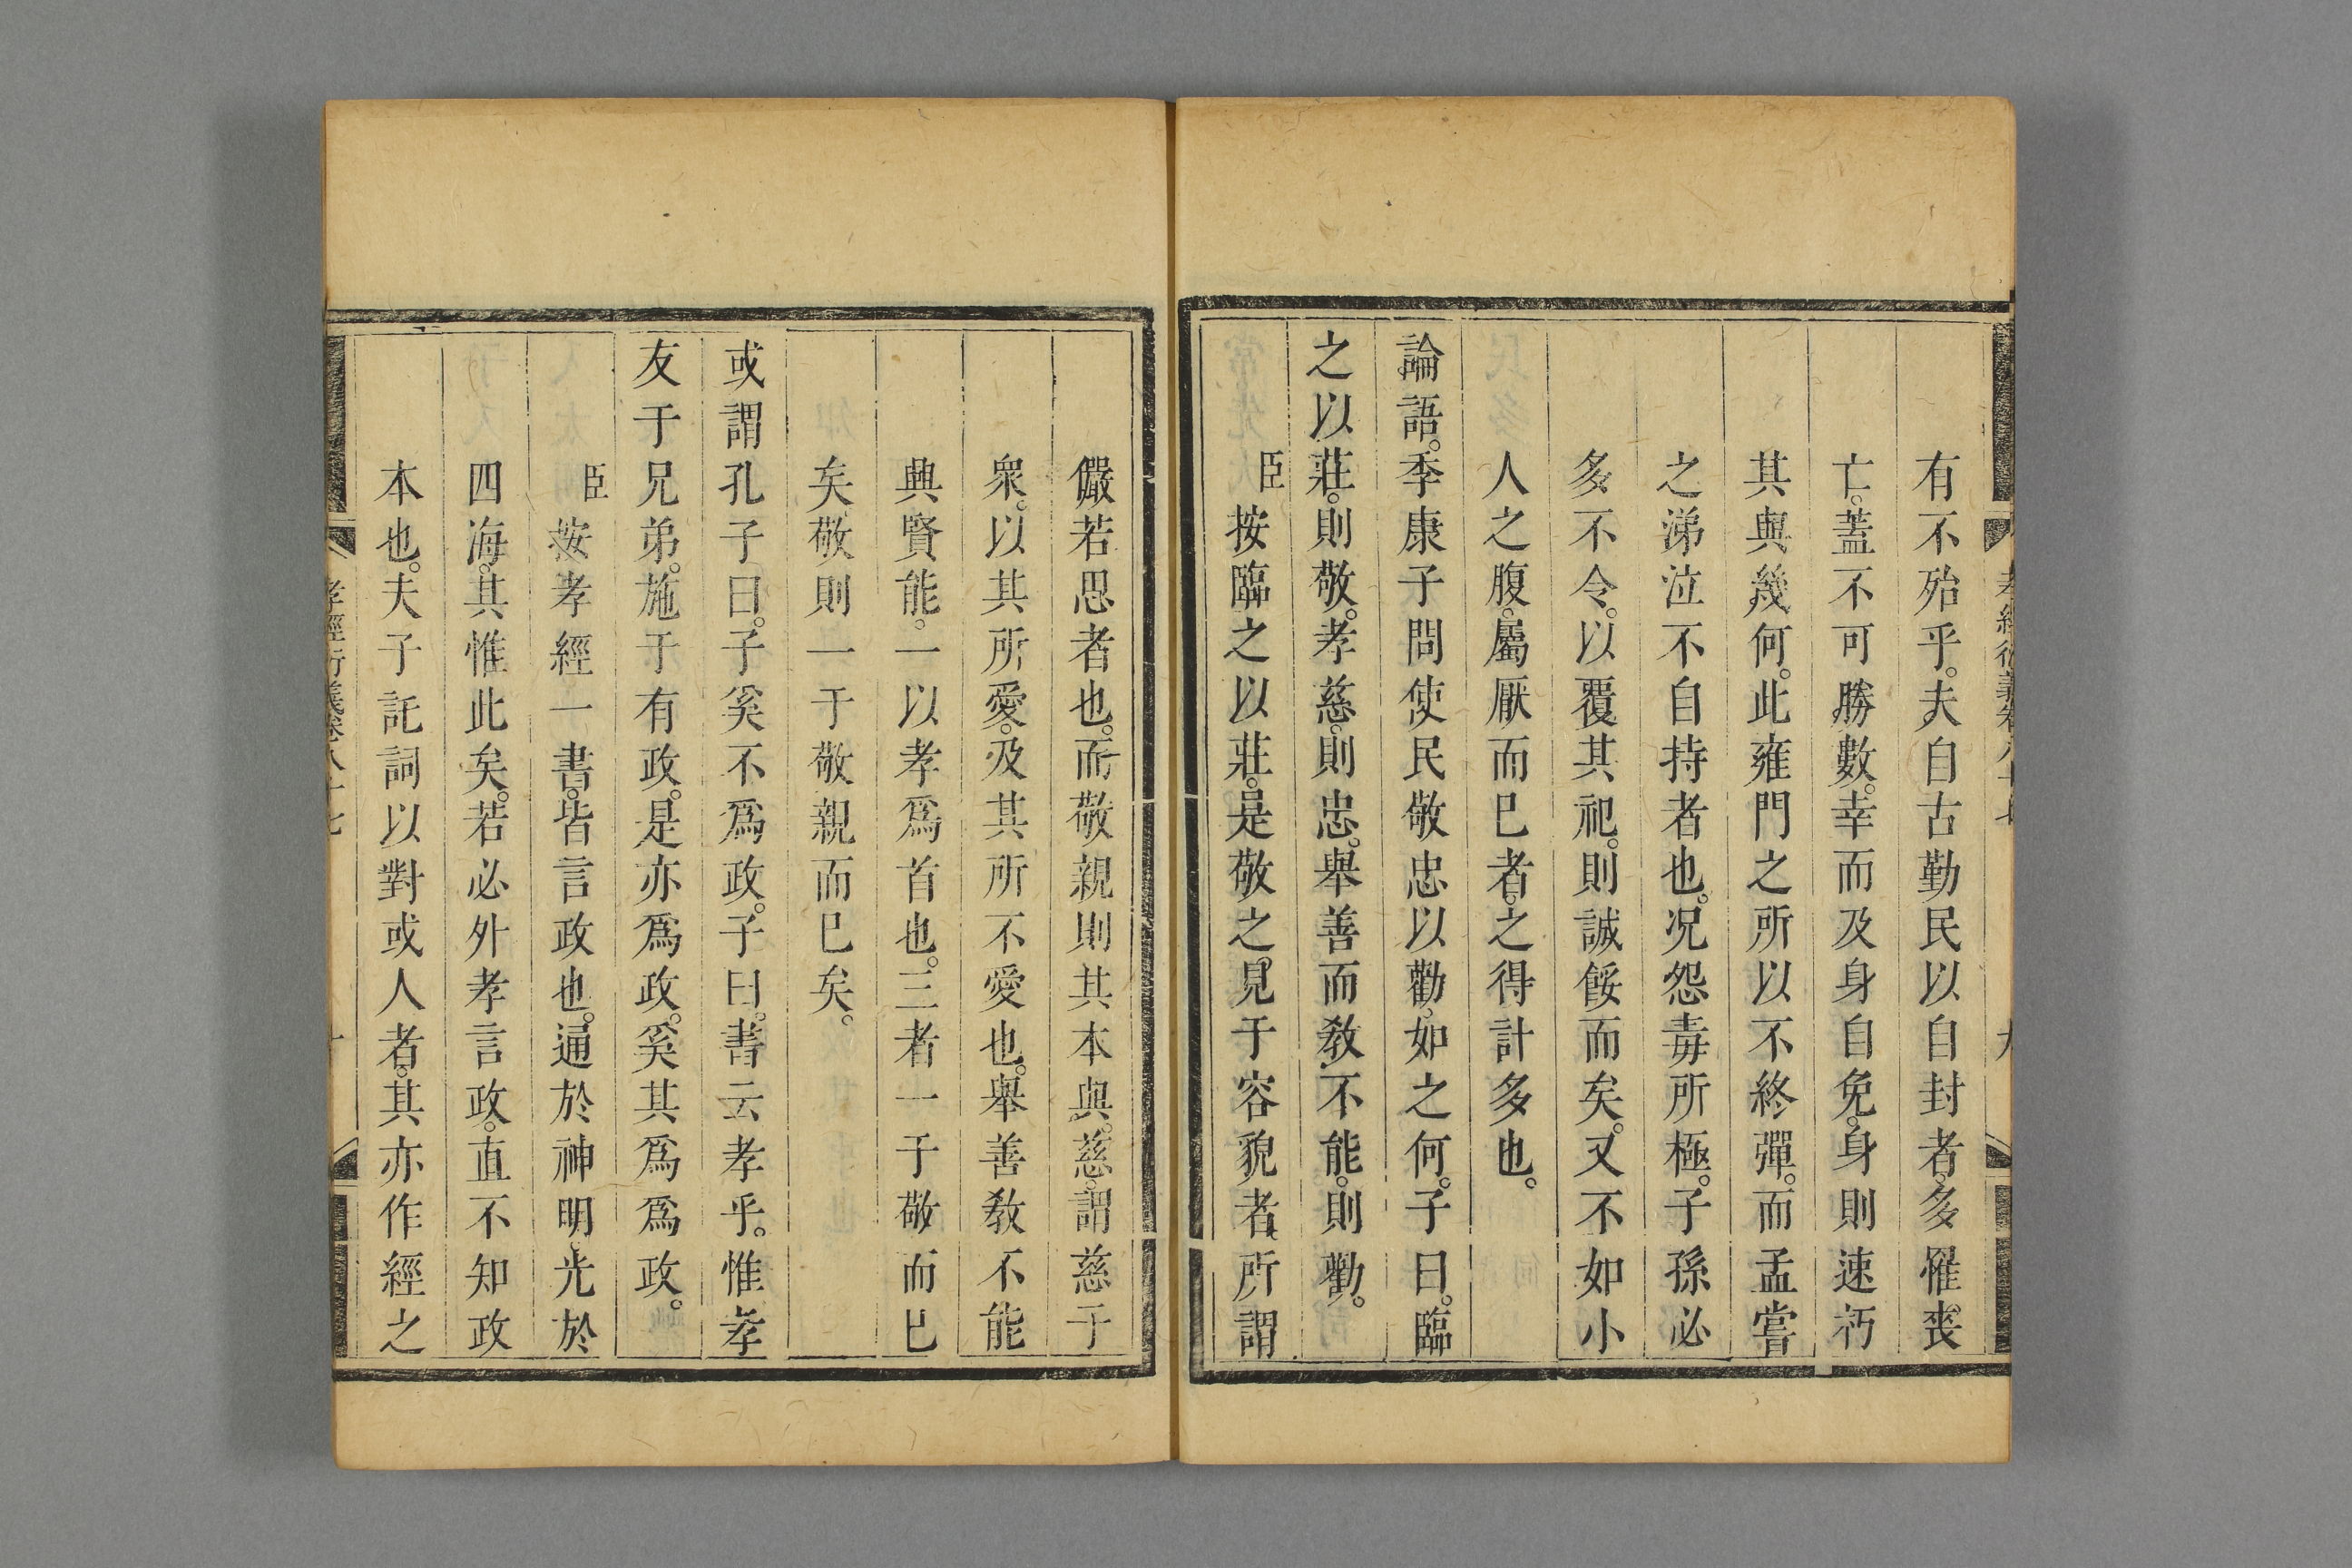 有不殆乎。夫自古勤民以自封者。多罹喪
亡。蓋不可勝數。幸而及身自免。身則速朽
其與幾何。此雍門之所以不終彈。而孟嘗
之涕泣不自持者也。况怨毒所極。子孫必
多不令。以覆其祀。則誠餒而矣。又不如小
人之腹。屬厭而已者。之得計多也。
論語。季康子問使民敬忠以勸。如之何。子曰。臨
之以莊。則敬。孝慈。則忠。舉善而敎不能。則勸。
臣按臨之以莊。是敬之。見于容貌者。所謂
儼若思者也。而敬親則其本與。慈。謂慈于
衆。以其所愛。及其所不愛也。舉善敎不能
興賢能。一以孝爲首也。三者一于敬而已
矣。敬則一于敬親而已矣。
或謂孔子曰。子奚不爲政。子曰。書云孝乎。惟孝
友于兄弟。施于有政。是亦爲政。奚其爲爲政。
臣按孝經一書。皆言政也。通於神明。光於
四海。其惟此矣。若必外孝言政。直不知政
本也。夫子託詞以對或人者。其亦作經之
孝經衍義卷八十七